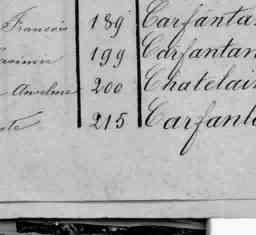 François 189 Carfanta
Casimir 199 Carfantan
Anselme 200 Chatelain
ste 215 Carfant